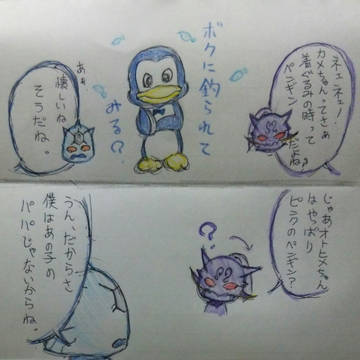 ネェネェ！
カメちゃんってさぁ
着ぐるみの時って
ペンギン
だよね？
ボクに釣られて
みる！？
あぁ
懐しいね
そうだね。
じゃあオトヒメちゃん
はやっぱり
ピンクのペンギン？
？
うん、だからさ
僕はあの子の
パパじゃないからね。